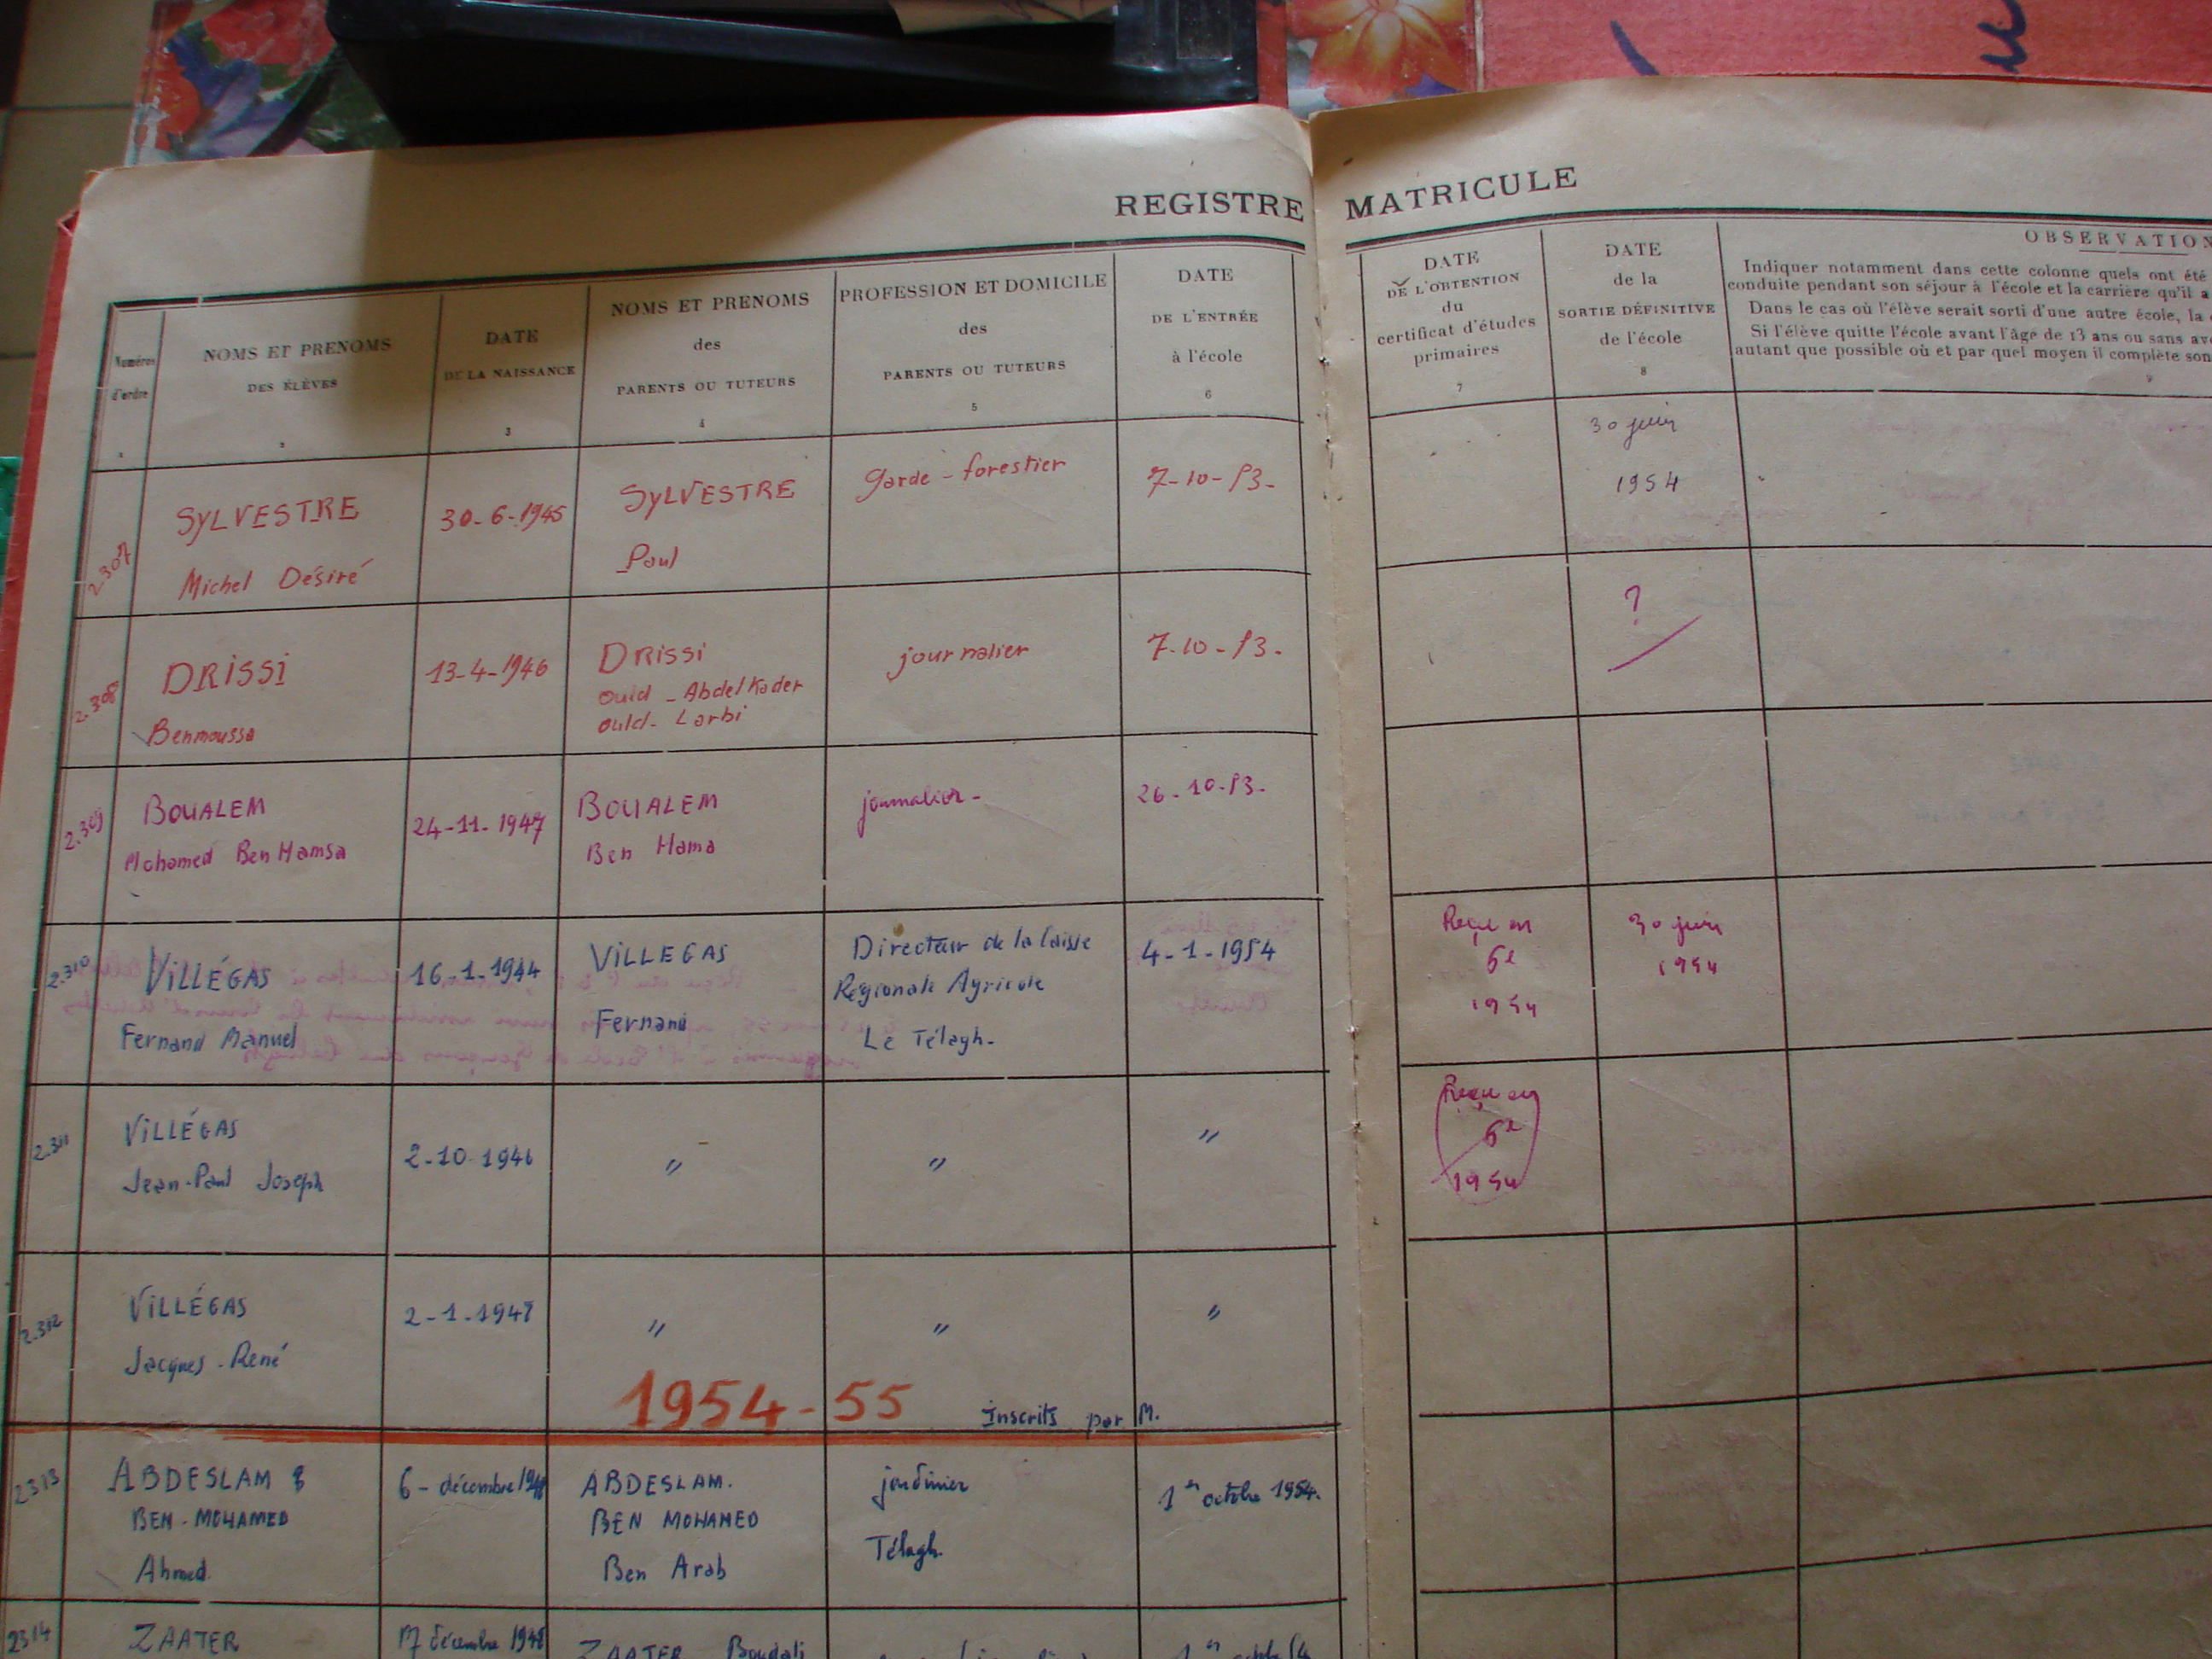 REGISTRE MATRICULE
Numéros
d'ordre
1
NOMS ET PRENOMS
DES ÉLÈVES
2
DATE
DE LA NAISSANCE
3
NOMS ET PRENOMS
des
PARENTS OU TUTEURS
4
PROFESSION ET DOMICILE
des
PARENTS OU TUTEURS
5
DATE
DE L'ENTRÉE
à l'école
6
DATE
DE L'OBTENTION
du
certificat d'études
primaires
7
DATE
de la
SORTIE DÉFINITIVE
de l'école
8
OBSERVATION
Indiquer notamment dans cette colonne quels ont été
conduite pendant son séjour à l'école et la carrière qu'il a
Dans le cas où l'élève serait sorti d'une autre école, la
Si l'élève quitte l'école avant l'âge de 13 ans ou sans av
autant que possible où et par quel moyen il complète son
9
2.307
SYLVESTRE
Michel Désiré
30-6-1945
SYLVESTRE
Paul
garde-forestier
7-10-53-
30 juin
1954
2.308
DRISSI
Benmoussa
13-4-1946
DRISSI
ould-Abdelkader
ould-Larbi
journalier
7-10-53-
?
2.309
BOUALEM
Mohamed Ben Hamsa
24-11-1947
BOUALEM
Ben Hama
journalier-
26-10-53-
2.310
VILLÉGAS
Fernand Manuel
16-1-1944
VILLEGAS
Fernand
Directeur de la Caisse
Régionale Agricole
Le Télagh-
4-1-1954
Reçu en
6e
1954
30 juin
1954
2.311
VILLÉGAS
Jean-Paul Joseph
2-10-1946
"
"
"
Reçu en
6e
1954
2.312
VILLÉGAS
Jacques-René
2-1-1948
"
"
"
1954-55 Inscrits par M.
2313
ABDESLAM
BEN-MOHAMED
Ahmed
6-décembre
ABDESLAM.
BEN MOHAMED
Ben Arab
jardinier
Télagh.
1er octobre 1954.
2314
ZAATER
17 décembre 1948
ZAATER Boudali